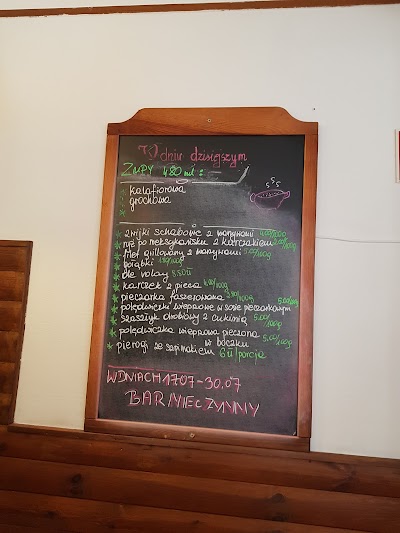 W dniu dzisiejszym
ZUPY 480 ml :
* kalafiorowa
* grochowa
*
* zwijki schabowe z warzywami /100g
* ryż po meksykańsku z kurczakiem /100g
* filet grillowany z warzywami /100g
* gołąbki /100g
* de volay
* karczek z pieca /100g
* pieczarka faszerowana /100g
* polędwiczki wieprzowe w sosie pieczarkowym
* szaszłyk drobiowy z cukinią 5.00/100g
* polędwiczka wieprzowa pieczona w boczku 5.00/100g
* pierogi ze szpinakiem /porcja
W DNIACH 17.07-30.07
BAR NIECZYNNY